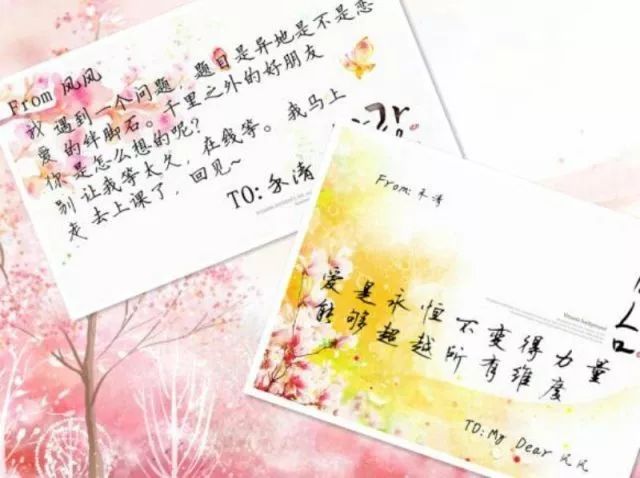 From 风风
我遇到一个问题，题目是异地是不是恋
爱的绊脚石。千里之外的好朋友
你是怎么想的呢？
别让我等太久，在线等。我马上
走去上课了，回见~
TO:禾涛
From:禾涛
爱是永恒不变得力量
能够超越所有维度
TO:My Dear 风风